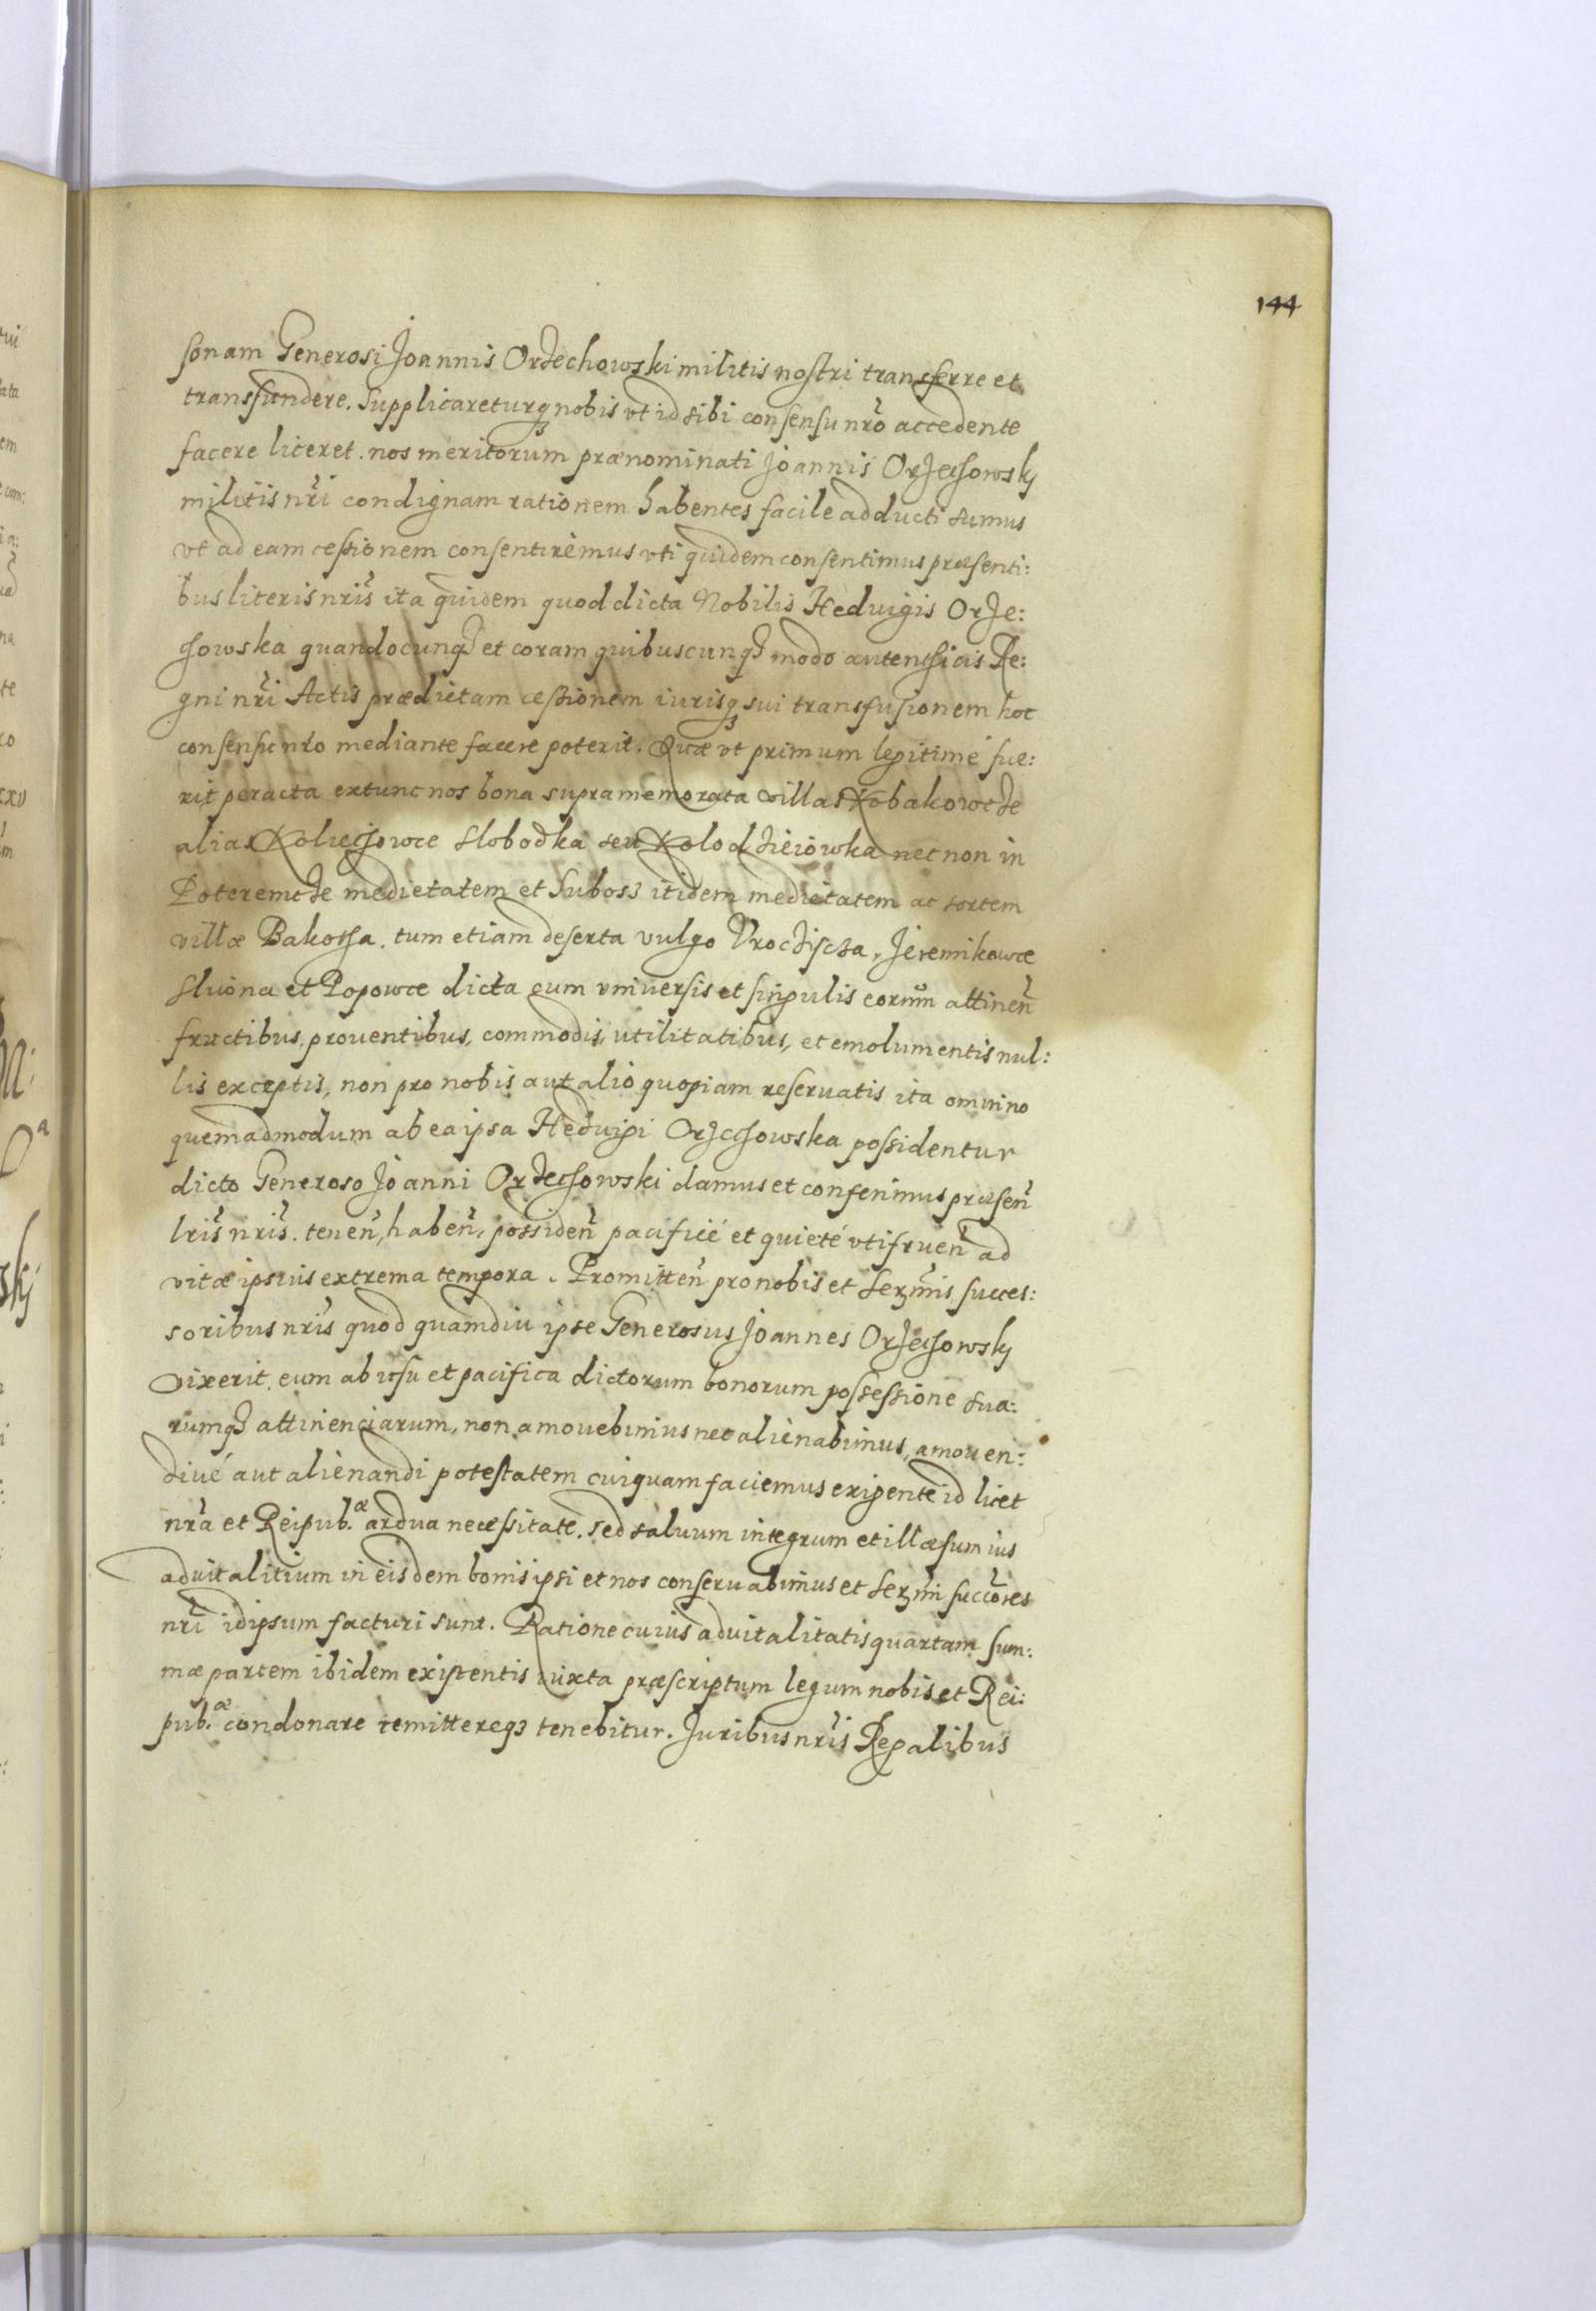 144
sonam Generosi Joannis Orzechowski militis nostri transferre et
transfundere. Supplicareturq3 nobis vt id sibi consensu nr̃o accedente
facere liceret. nos meritorum prænominati Joannis Orzechowskj
militis nr̃i condignam rationem habentes facile adducti sumus
vt ad eam cessionem consentiremus vti quidem consentimus præsenti:
bus literis nr̃is ita quidem quod dicta Nobilis Hedvigis Orze:
chowska quandocunq3 et coram quibuscunq3 modo autenthicis Re:
gni nr̃i Actis prædictam cessionem iurisq3 sui transfusionem hoc
consensu nr̃o mediante facere poterit. Quæ vt primum legitimé fue:
rit peracta extunc nos bona supramemorata villas Kobakowcze
alias Koliechowce Slobodka seu Kolodzieiowka nec non in
Poteremcze medietatem et Suboss itidem medietatem ac sortem
villæ Bakotha. tum etiam deserta vulgo Vroczischa, Jeremikowce
Sluona et Popowce dicta cum vniuersis et singulis eorum attineñ
fructibus, prouentibus, commodis, vtilitatibus, et emolumentis nul:
lis exceptis, non pro nobis aut alio quopiam reseruatis ita omnino
quemadmodum ab ea ipsa Hedvigi Orzechowska possidentur
dicto Generoso Joanni Orzechowski damus et conferimus præseñ
lr̃is nr̃is. teneñ, habeñ, possideñ pacificé et quieté vtifrueñ ad
vitæ ipsius extrema tempora. Promitteñ pro nobis et Serm̃is succes:
soribus nr̃is quod quamdiu ipse Generosus Joannes Orzechowskj
vixerit. eum ab vsu et pacifica dictorum bonorum possessione sua:
rumq3 attinenciarum, non amouebimus nec alienabimus, amouen:
diué aut alienandi potestatem cuiquam faciemus exigente id licet
nr̃a et Reipub.æ ardua necessitate. sed saluum integrum et illæsum ius
aduitalitium in eisdem bonis ipsi et nos conseruabimus et Serm̃i succõres
nr̃i idipsum facturi sunt. Ratione cuius aduitalitatis quartam sum:
mæ partem ibidem existentis iuxta præscriptum legum nobis et Rei:
pub.æ condonare remittereq3 tenebitur. Juribus nr̃is Regalibus